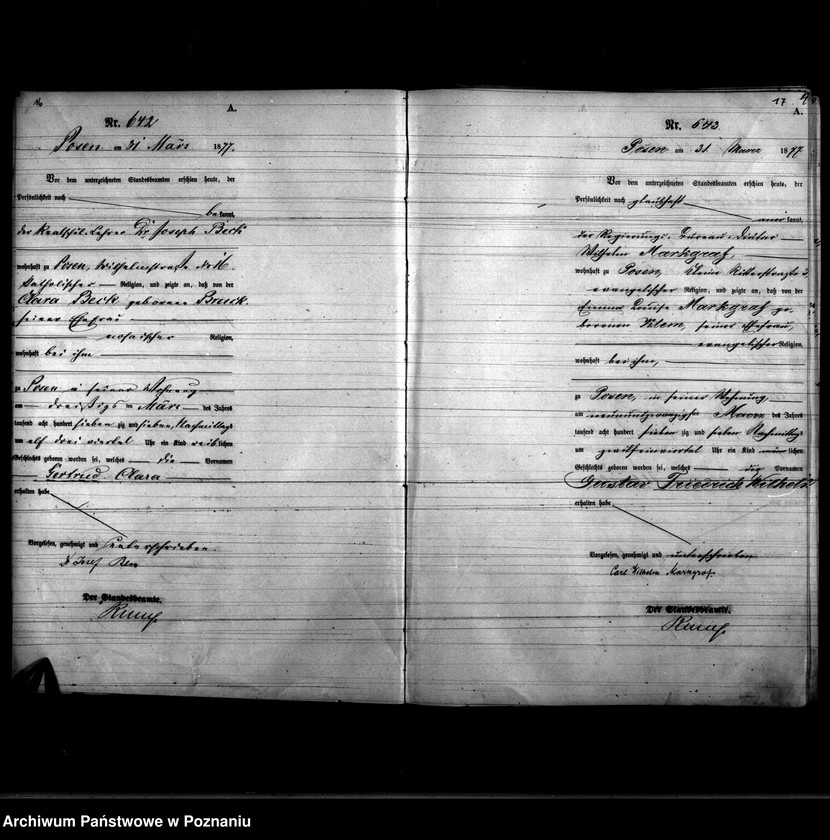 16
A.
Nr. 642
Posen am 31 März 1877.
Vor dem unterzeichneten Standesbeamten erschien heute, der
Persönlichkeit nach
bekannt,
der Realschul-Lehrer Dr Joseph Beck
wohnhaft zu Posen, Wilhelmstraße No 16
katholischer Religion, und zeigte an, daß von der
Clara Beck geborene
seiner Ehefrau
mosaischer Religion,
wohnhaft bei ihm
zu Posen in seiner Wohnung
am dreißigsten März des Jahres
tausend acht hundert siebenzig und sieben, Nachmittags
um elf drei viertel Uhr ein Kind weiblichen
Geschlechts geboren worden sei, welches die Vornamen
Gertrud Clara
erhalten habe
Vorgelesen, genehmigt und unterschrieben.
Dr Josef Beck
Der Standesbeamte.
17
A.
Nr. 643
Posen am 31. Maerz 1877
Vor dem unterzeichneten Standesbeamten erschien heute, der
Persönlichkeit nach glaubhaft
anerkannt,
der Regierungs-Bureau-Diätar
Wilhelm Markgraf,
wohnhaft zu Posen, kleine Ritterstraße
evangelischer Religion, und zeigte an, daß von der
Emma Louise Markgraf ge-
borenen Klem, seiner Ehefrau,
evangelischer Religion,
wohnhaft bei ihm,
zu Posen, in seiner Wohnung,
am neunundzwanzigsten Maerz des Jahres
tausend acht hundert siebenzig und sieben Nachmittags
um Uhr ein Kind männlichen
Geschlechts geboren worden sei, welches die Vornamen
Gustav Friedrich Wilhelm
erhalten habe
Vorgelesen, genehmigt und unterschrieben
Carl Wilhelm Markgraf.
Der Standesbeamte.
Archiwum Państwowe w Poznaniu